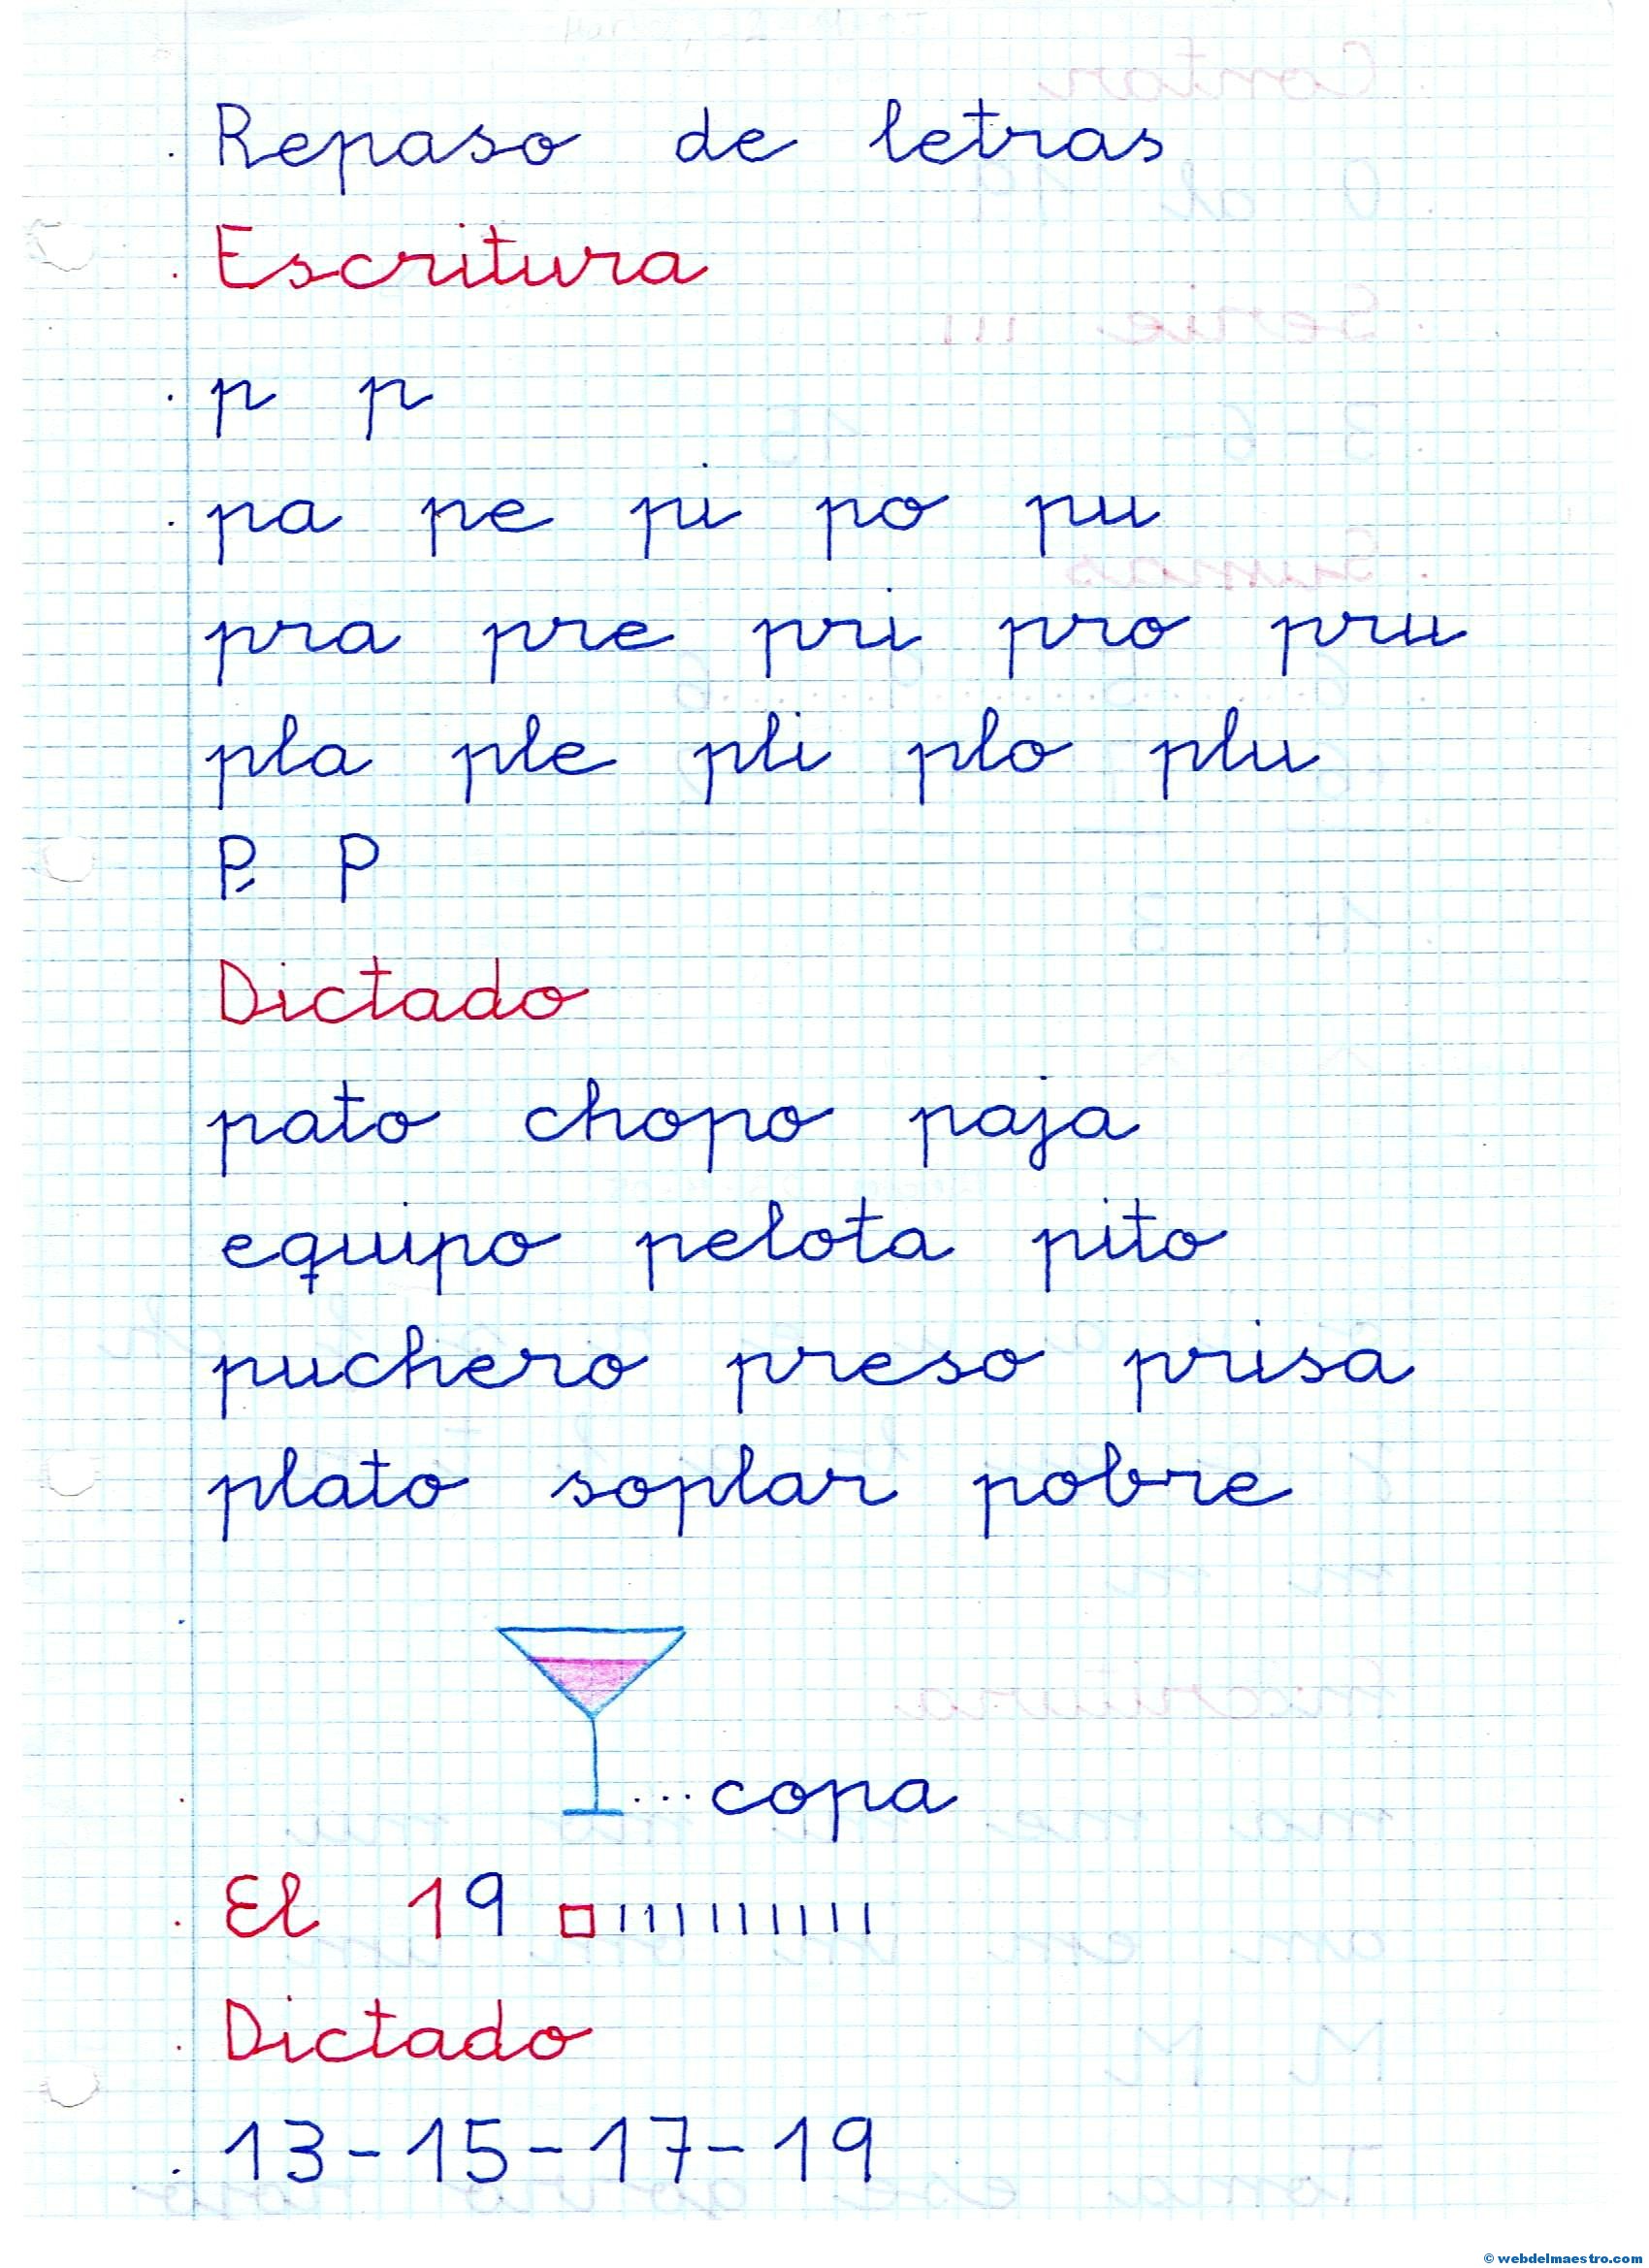 Repaso de letras
Escritura
p p
pa pe pi po pu
pra pre pri pro pru
pla ple pli plo plu
P, P
Dictado
pato chopo paja
equipo pelota pito
puchero preso prisa
plato soplar pobre
...copa
El 19
Dictado
13-15-17-19
© webdelmaestro.com